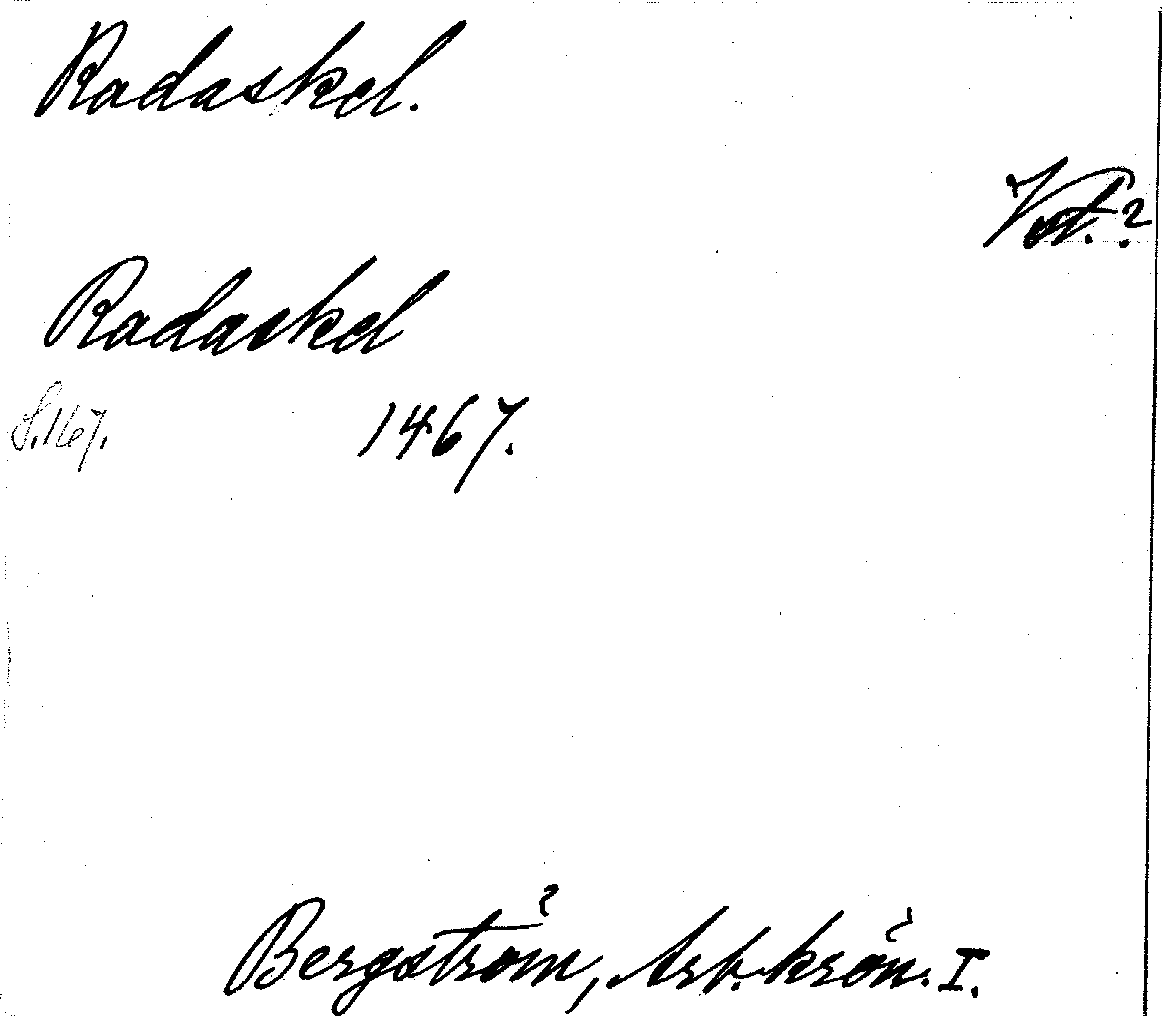 Radaskel.
Vst.?
Radaskel
S.167. 1467.
Bergström, Arb. krön. I.